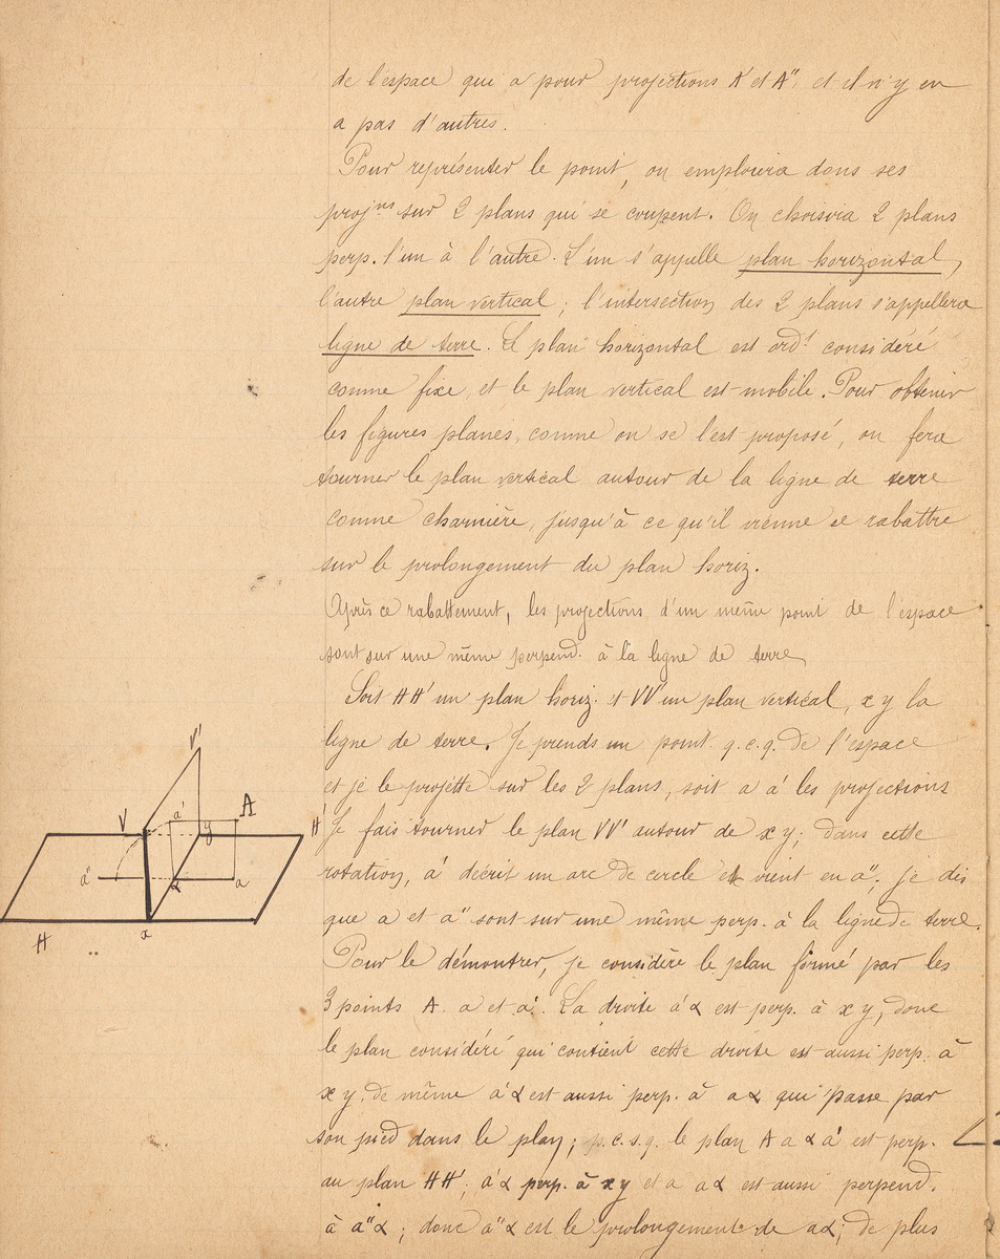 de l'espace qui a pour projections A' et A'', et il n'y en
a pas d'autres.
Pour représenter le point, on emploiera dons ses
projns sur 2 plans qui se coupent. On choisira 2 plans
perp. l'un à l'autre. L'un s'appelle plan horizontal,
l'autre plan vertical ; l'intersection des 2 plans s'appellera
ligne de terre. Le plan horizontal est ordt considéré
comme fixe, et le plan vertical est mobile. Pour obtenir
les figures planes, comme on se l'est proposé, on fera
tourner le plan vertical autour de la ligne de terre
comme charnière, jusqu'à ce qu'il vienne se rabattre
sur le prolongement du plan horiz.
Après ce rabattement, les projections d'un même point de l'espace
sont sur une même perpend. à la ligne de terre
Soit HH' un plan horiz. et VV' un plan vertical, xy la
ligne de terre. Je prends un point q.c.q. de l'espace
et je le projette sur les 2 plans, soit a a' les projections
Je fais tourner le plan VV' autour de xy ; dans cette
rotation, a' décrit un arc de cercle et vient en a'' ; je dis
que a et a'' sont sur une même perp. à la ligne de terre.
Pour le démontrer, je considère le plan formé par les
3 points A. a et a'. La droite a'α est perp. à xy, donc
le plan considéré qui contient cette droite est aussi perp. à
xy ; de même a'α est aussi perp. à aα qui passe par
son pied dans le plan ; p.c.s.q. le plan A a α a' est perp.
au plan HH' ; a'α perp. à xy et a aα est aussi perpend.
à a''α ; donc a''α est le prolongement de aα ; de plus
V'
V
a'
A
y
H'
a''
α
a
H
x